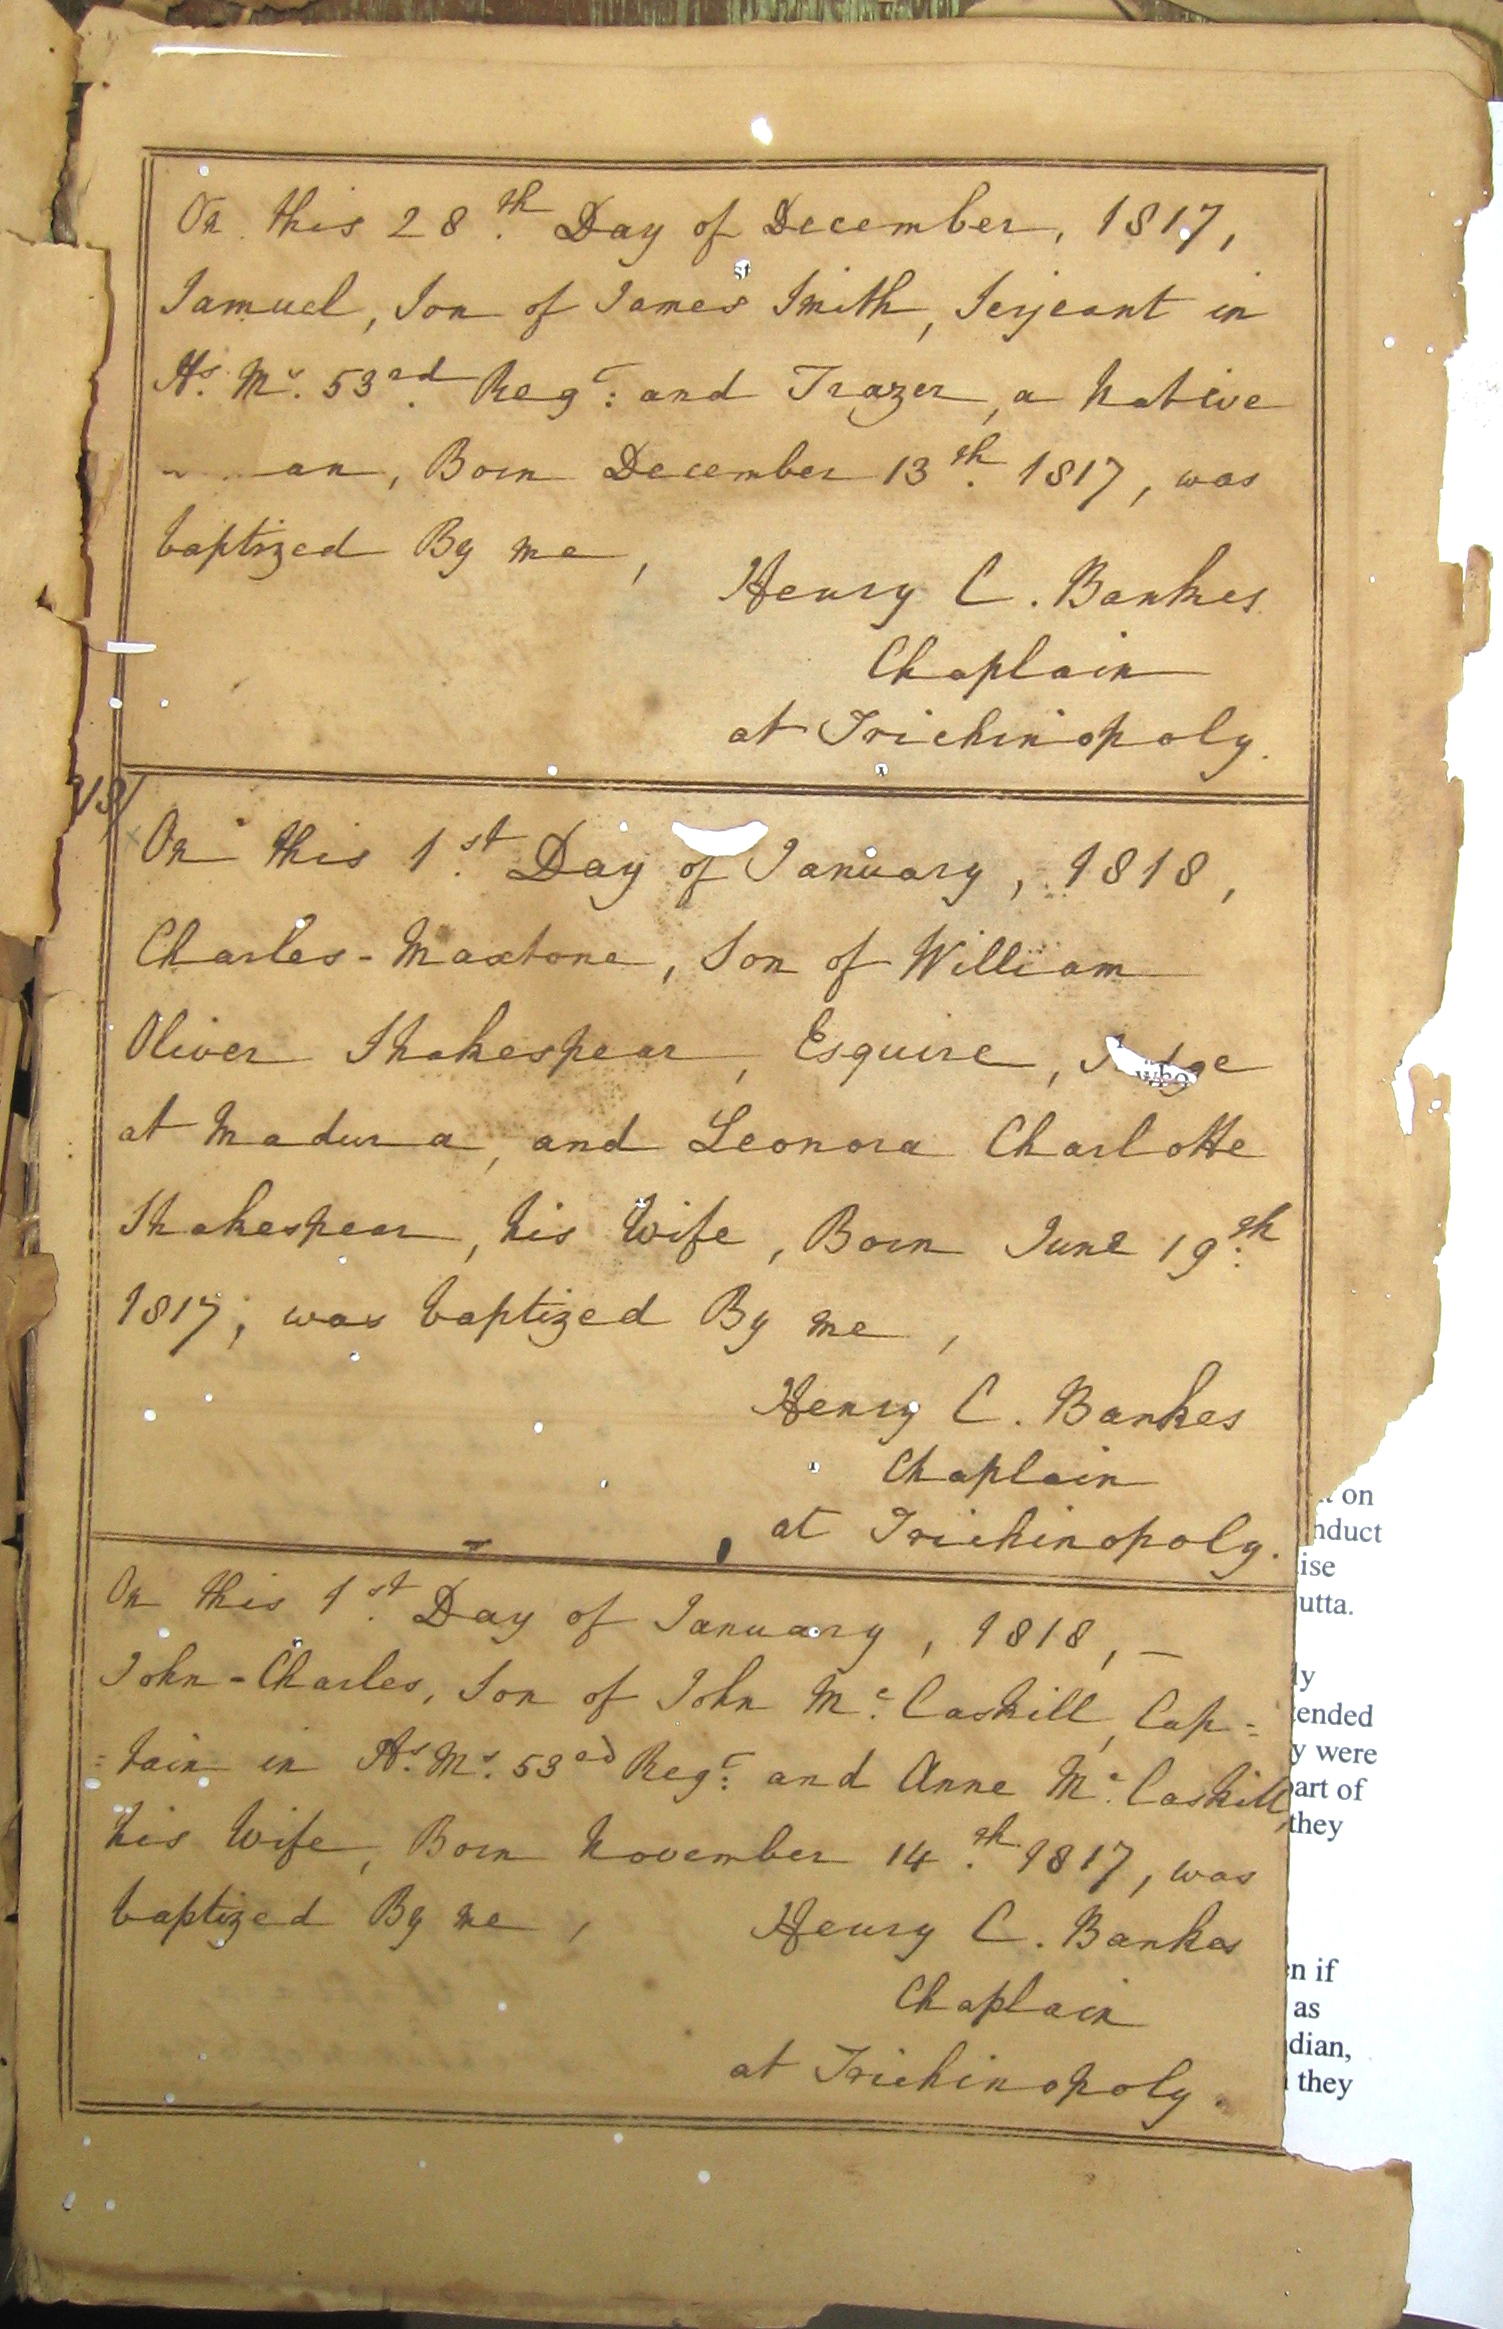 On this 28th. Day of December, 1817,
Samuel, Son of James Smith, Serjeant in
Hs. Ms. 53rd. Regt: and Trazer, a Native
an, Born December 13th. 1817, was
baptized By me,
Henry C. Bankes
Chaplain
at Trichinopoly.
On this 1st. Day of January, 1818,
Charles-Maxtone, Son of William
Oliver Shakespear, Esquire, Judge
at Madura, and Leonora Charlotte
Shakespear, his Wife, Born June 19th.
1817, was baptized By me,
Henry C. Bankes
Chaplain
at Trichinopoly.
On this 1st. Day of January, 1818, —
John-Charles, Son of John Mc. Caskill, Cap=
=tain in Hs. Ms. 53rd Regt: and Anne Mc. Caskill,
his Wife, Born November 14th. 1817, was
baptized By me,
Henry C. Bankes
Chaplain
at Trichinopoly.
on
nduct
ise
utta.
ly
tended
y were
part of
they
n if
as
dian,
they